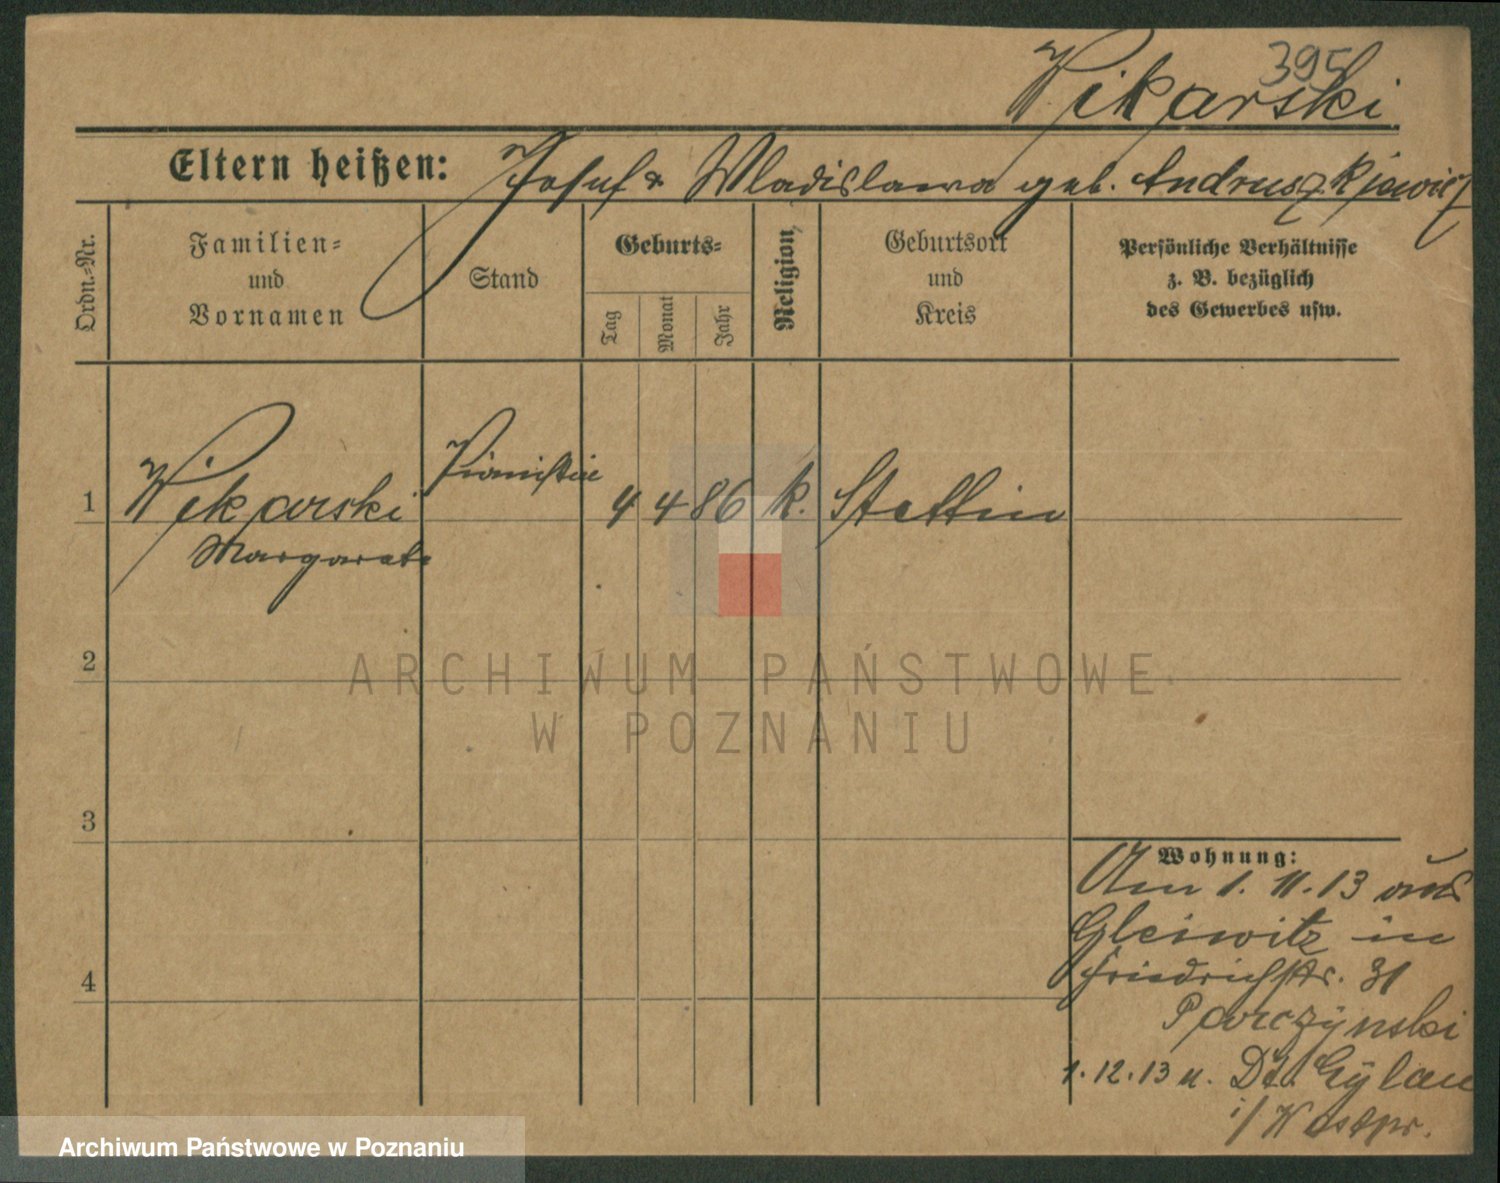 395
Wikarski
Eltern heißen: Josef & Wladislawa geb. Andruszkiewicz
Ordn.=Nr.
Familien=
und
Vornamen
Stand
Geburts=
Tag
Monat
Jahr
Religion
Geburtsort
und
Kreis
Persönliche Verhältnisse
z. B. bezüglich
des Gewerbes usw.
1 Wikarski Pianistin 4 4 86 k. Stettin
Margarete
2
3
4
Wohnung:
Am 1. 11. 13 aus
Gleiwitz in
Friedrichstr. 31
Parczynski
1. 12. 13 n. Dt. Eylau
i/Westpr.
ARCHIWUM PAŃSTWOWE
W POZNANIU
Archiwum Państwowe w Poznaniu